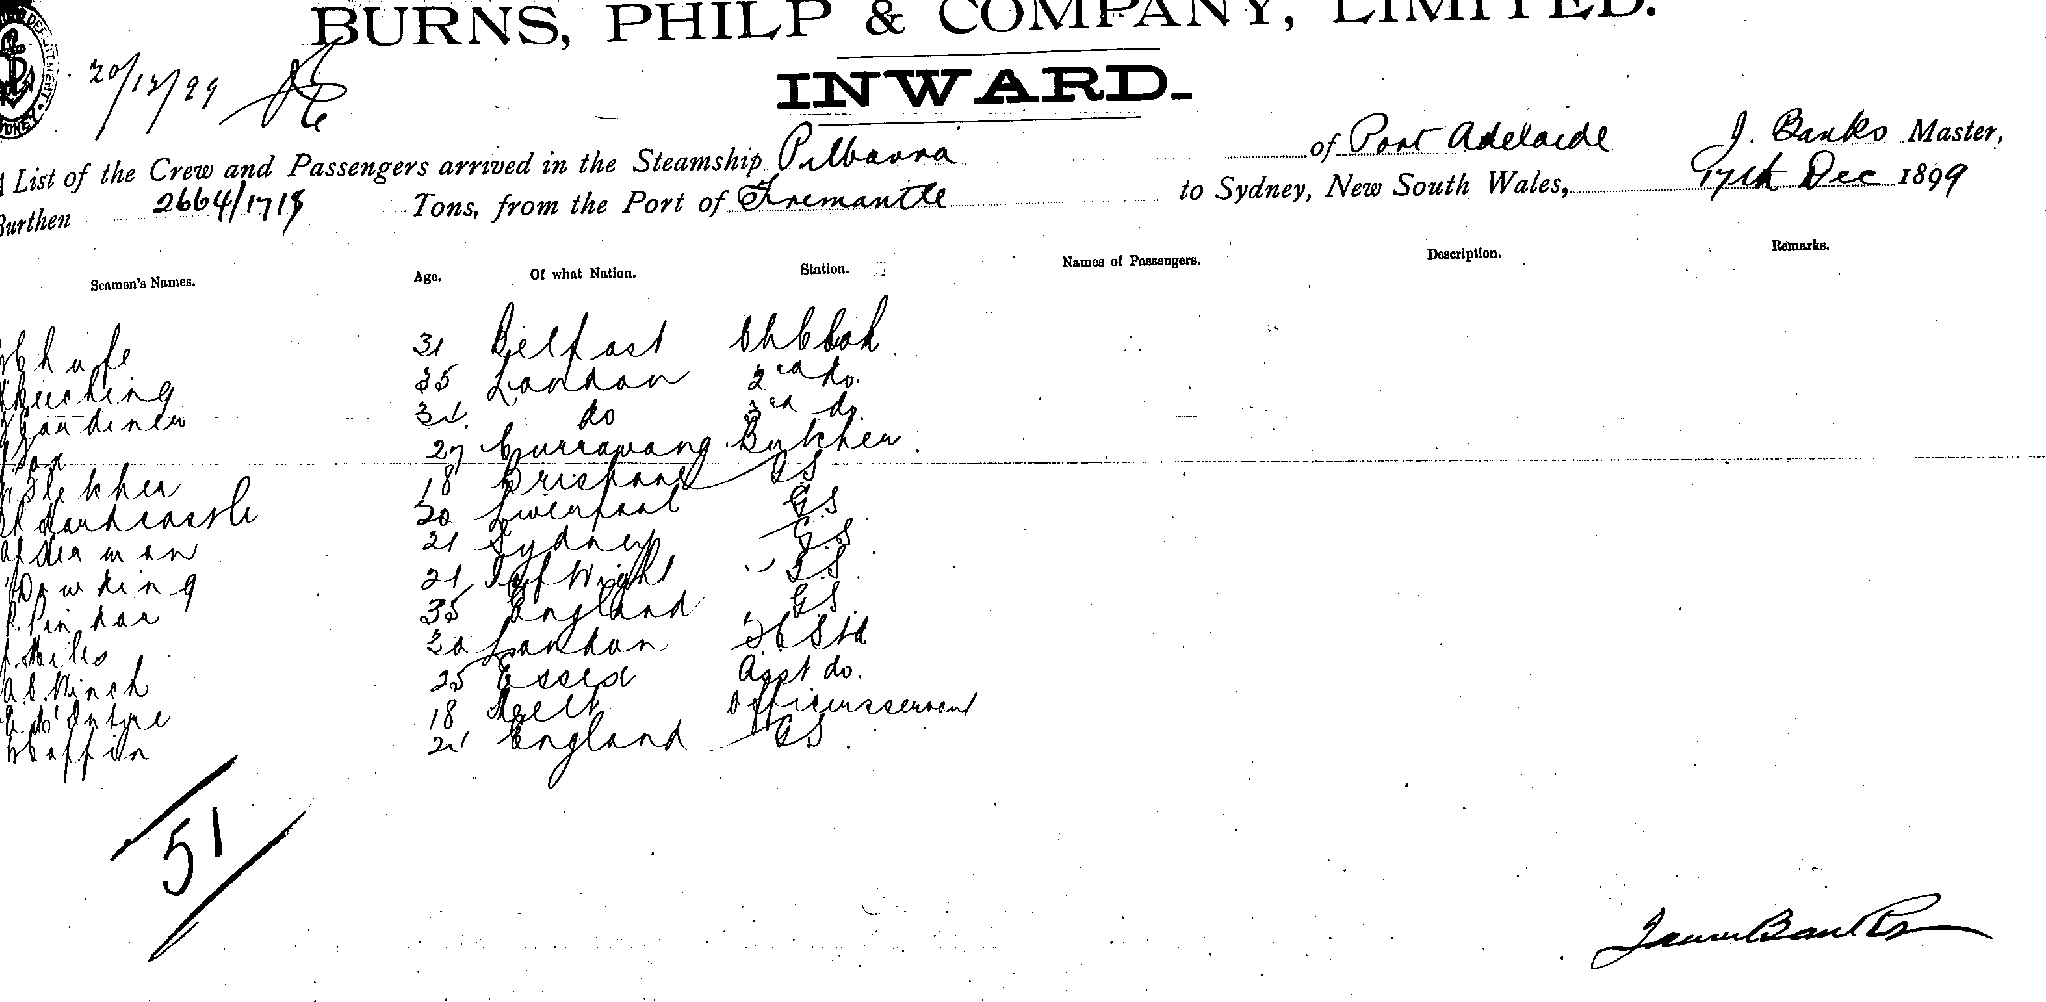 BURNS, PHILP & COMPANY, LIMITED.
INWARD.
20/12/99
List of the Crew and Passengers arrived in the Steamship Pilbarra of Port Adelaide J. Banks Master,
Burthen 2664/1718 Tons, from the Port of Fremantle to Sydney, New South Wales, 17th Dec 1899
Seamen's Names. Age. Of what Nation. Station. Names of Passengers. Description. Remarks.
31 Belfast Ch Cook
35 London 2nd do.
do 3rd do.
Gardiner
27 Currawang Butcher
18 Brisbane GS
Hardcastle 20 Liverpool GS
Alderman 21 Sydney GS
Dowding 21 I of Wight GS
Pindar 35 England GS
Miles London
Minch 25 Essex Asst do.
18 Melb Officers servant
England GS
51
James Banks